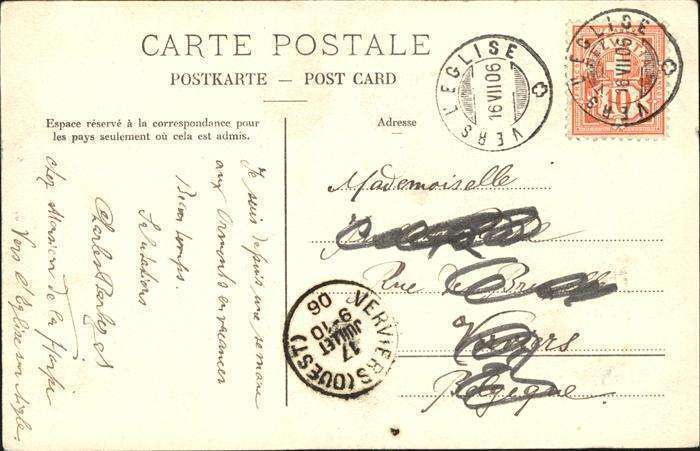 CARTE POSTALE
POSTKARTE — POST CARD
Espace réservé à la correspondance pour
les pays seulement où cela est admis.
Adresse
VERS L'EGLISE
16 VII 06
VERS L'EGLISE
16 VII 06
10
Mademoiselle
Rue de
Verviers
Belgique
VERVIERS (OUEST)
17
JUILLET
9-10
06
Je suis depuis une semaine
aux Ormonts en vacances
Beau temps.
Salutations
Chez Marion de la Harpe
Vers l'Eglise sur Aigle